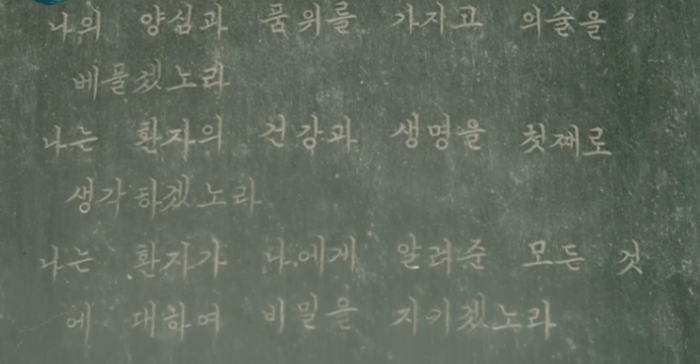 나의 양심과 품위를 가지고 의술을
베풀겠노라
나는 환자의 건강과 생명을 첫째로
생각하겠노라
나는 환자가 나에게 알려준 모든 것
에 대하여 비밀을 지키겠노라